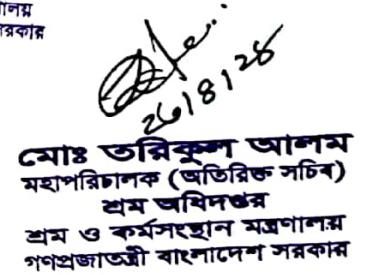 রকার
২৬/৪/২৪
মোঃ তরিকুল আলম
মহাপরিচালক (অতিরিক্ত সচিব)
শ্রম অধিদপ্তর
শ্রম ও কর্মসংস্থান মন্ত্রণালয়
গণপ্রজাতন্ত্রী বাংলাদেশ সরকার